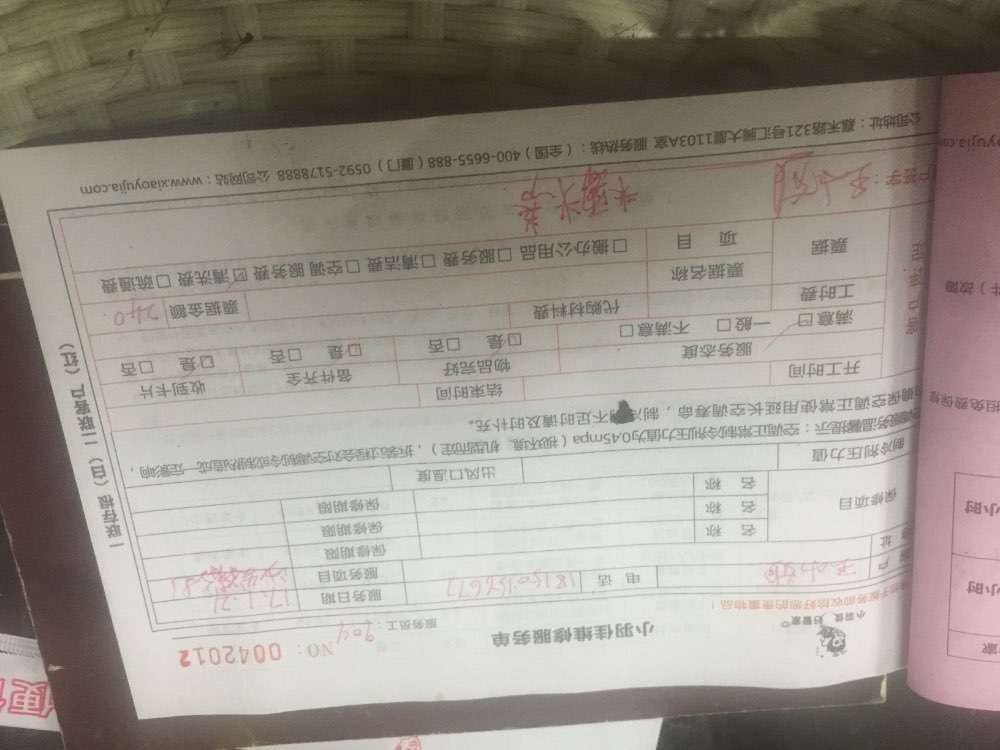 小羽佳 好管家
小羽佳维修服务单
NO: 0042012
服务员工: 904
给予服务前收拾好您的贵重物品!
客户
电话
服务日期 17.1.21
地址
服务项目
保修项目
名称 保修期限
名称 保修期限
名称 保修期限
制冷剂压力值
出风口温度
空调正常制冷剂压力值为0.45mpa(视环境、机型而定),拆装过程会对空调制冷或制热造成一定影响,
确保空调正常使用延长空调寿命,制冷剂不足时请及时补充。
开工时间
结束时间
服务态度
物品完好
备件齐全
收到卡片
满意 一般 不满意
是 否
是 否
是 否
工时费
代购材料费
票据
票据名称
票据金额 240
项目
搬办公用品 服务费 清洁费 空调服务费 清洗费 疏通费
客户评定
户签字:
公司地址:嘉禾路321号汇腾大厦1103A室 服务热线:(全国)400-6655-888(厦门)0592-5178888 公司网站:www.xiaoyujia.com
一联存根(白) 二联客户(红)
家
小时
小时
担免费保修
件)故障
更